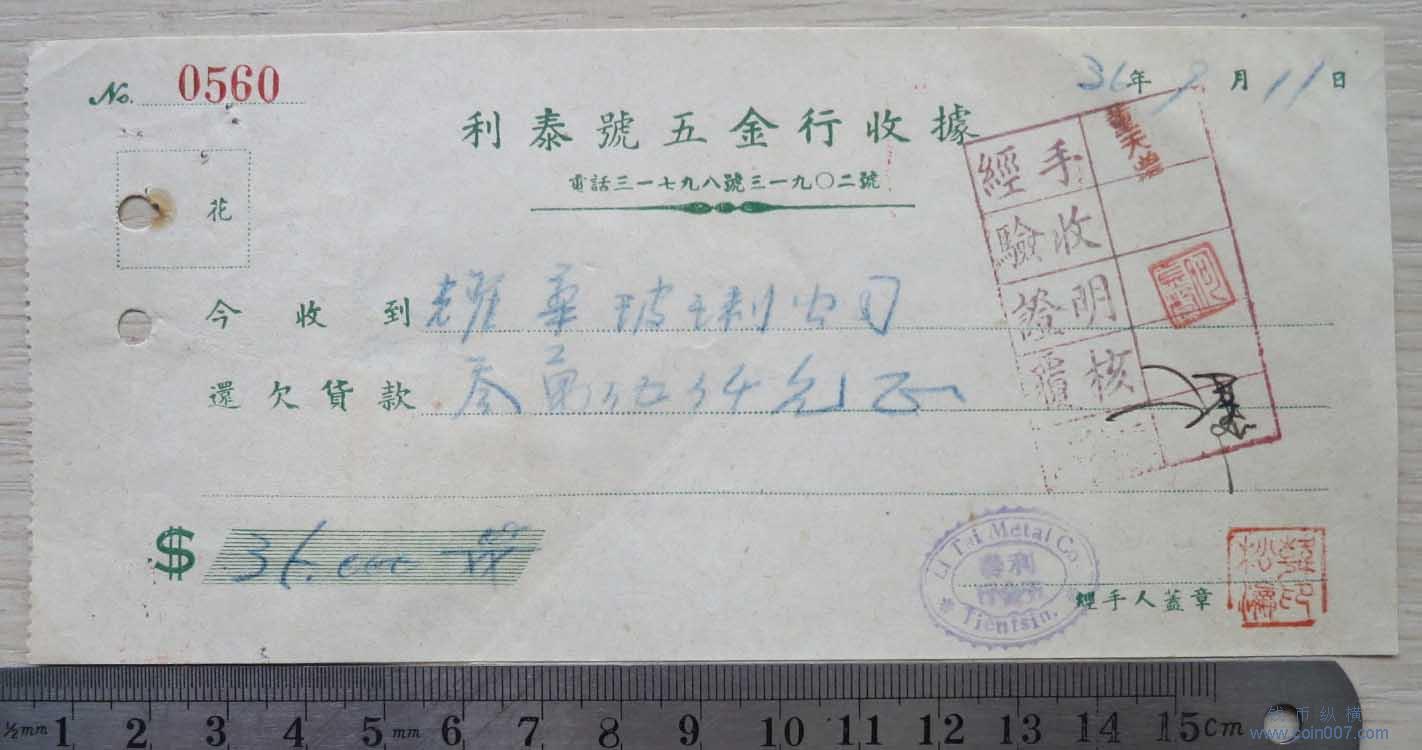 No. 0560
36年9月11日
利泰號五金行收據
電話三一七九八號三一九〇二號
花
經手
驗收
證明
覆核
今收到耀華玻璃公司
還欠貨款叁萬伍仟元正
$ 35.000
Li Tai Metal Co
利泰
五金行
Tientsin.
經手人蓋章
½mm 1 2 3 4 5 mm 6 7 8 9 10 11 12 13 14 15cm
钱币纵横
www.coin007.com